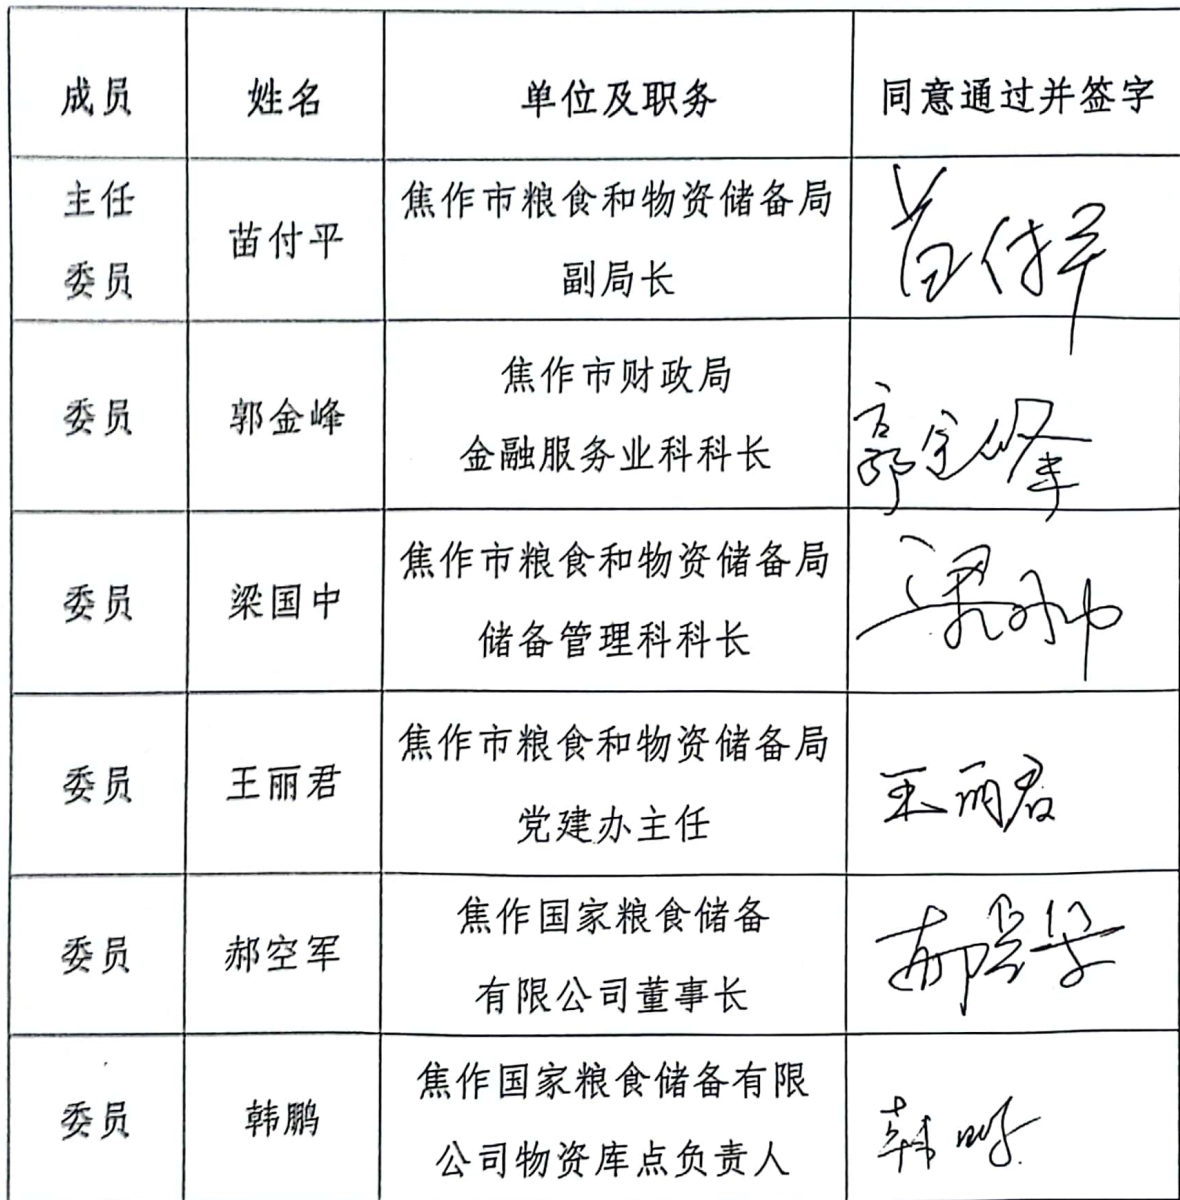 成员 姓名 单位及职务 同意通过并签字
主任
委员
苗付平
焦作市粮食和物资储备局
副局长
苗付平
委员
郭金峰
焦作市财政局
金融服务业科科长
郭金峰
委员
梁国中
焦作市粮食和物资储备局
储备管理科科长
梁国中
委员
王丽君
焦作市粮食和物资储备局
党建办主任
王丽君
委员
郝空军
焦作国家粮食储备
有限公司董事长
郝空军
委员
韩鹏
焦作国家粮食储备有限
公司物资库点负责人
韩鹏